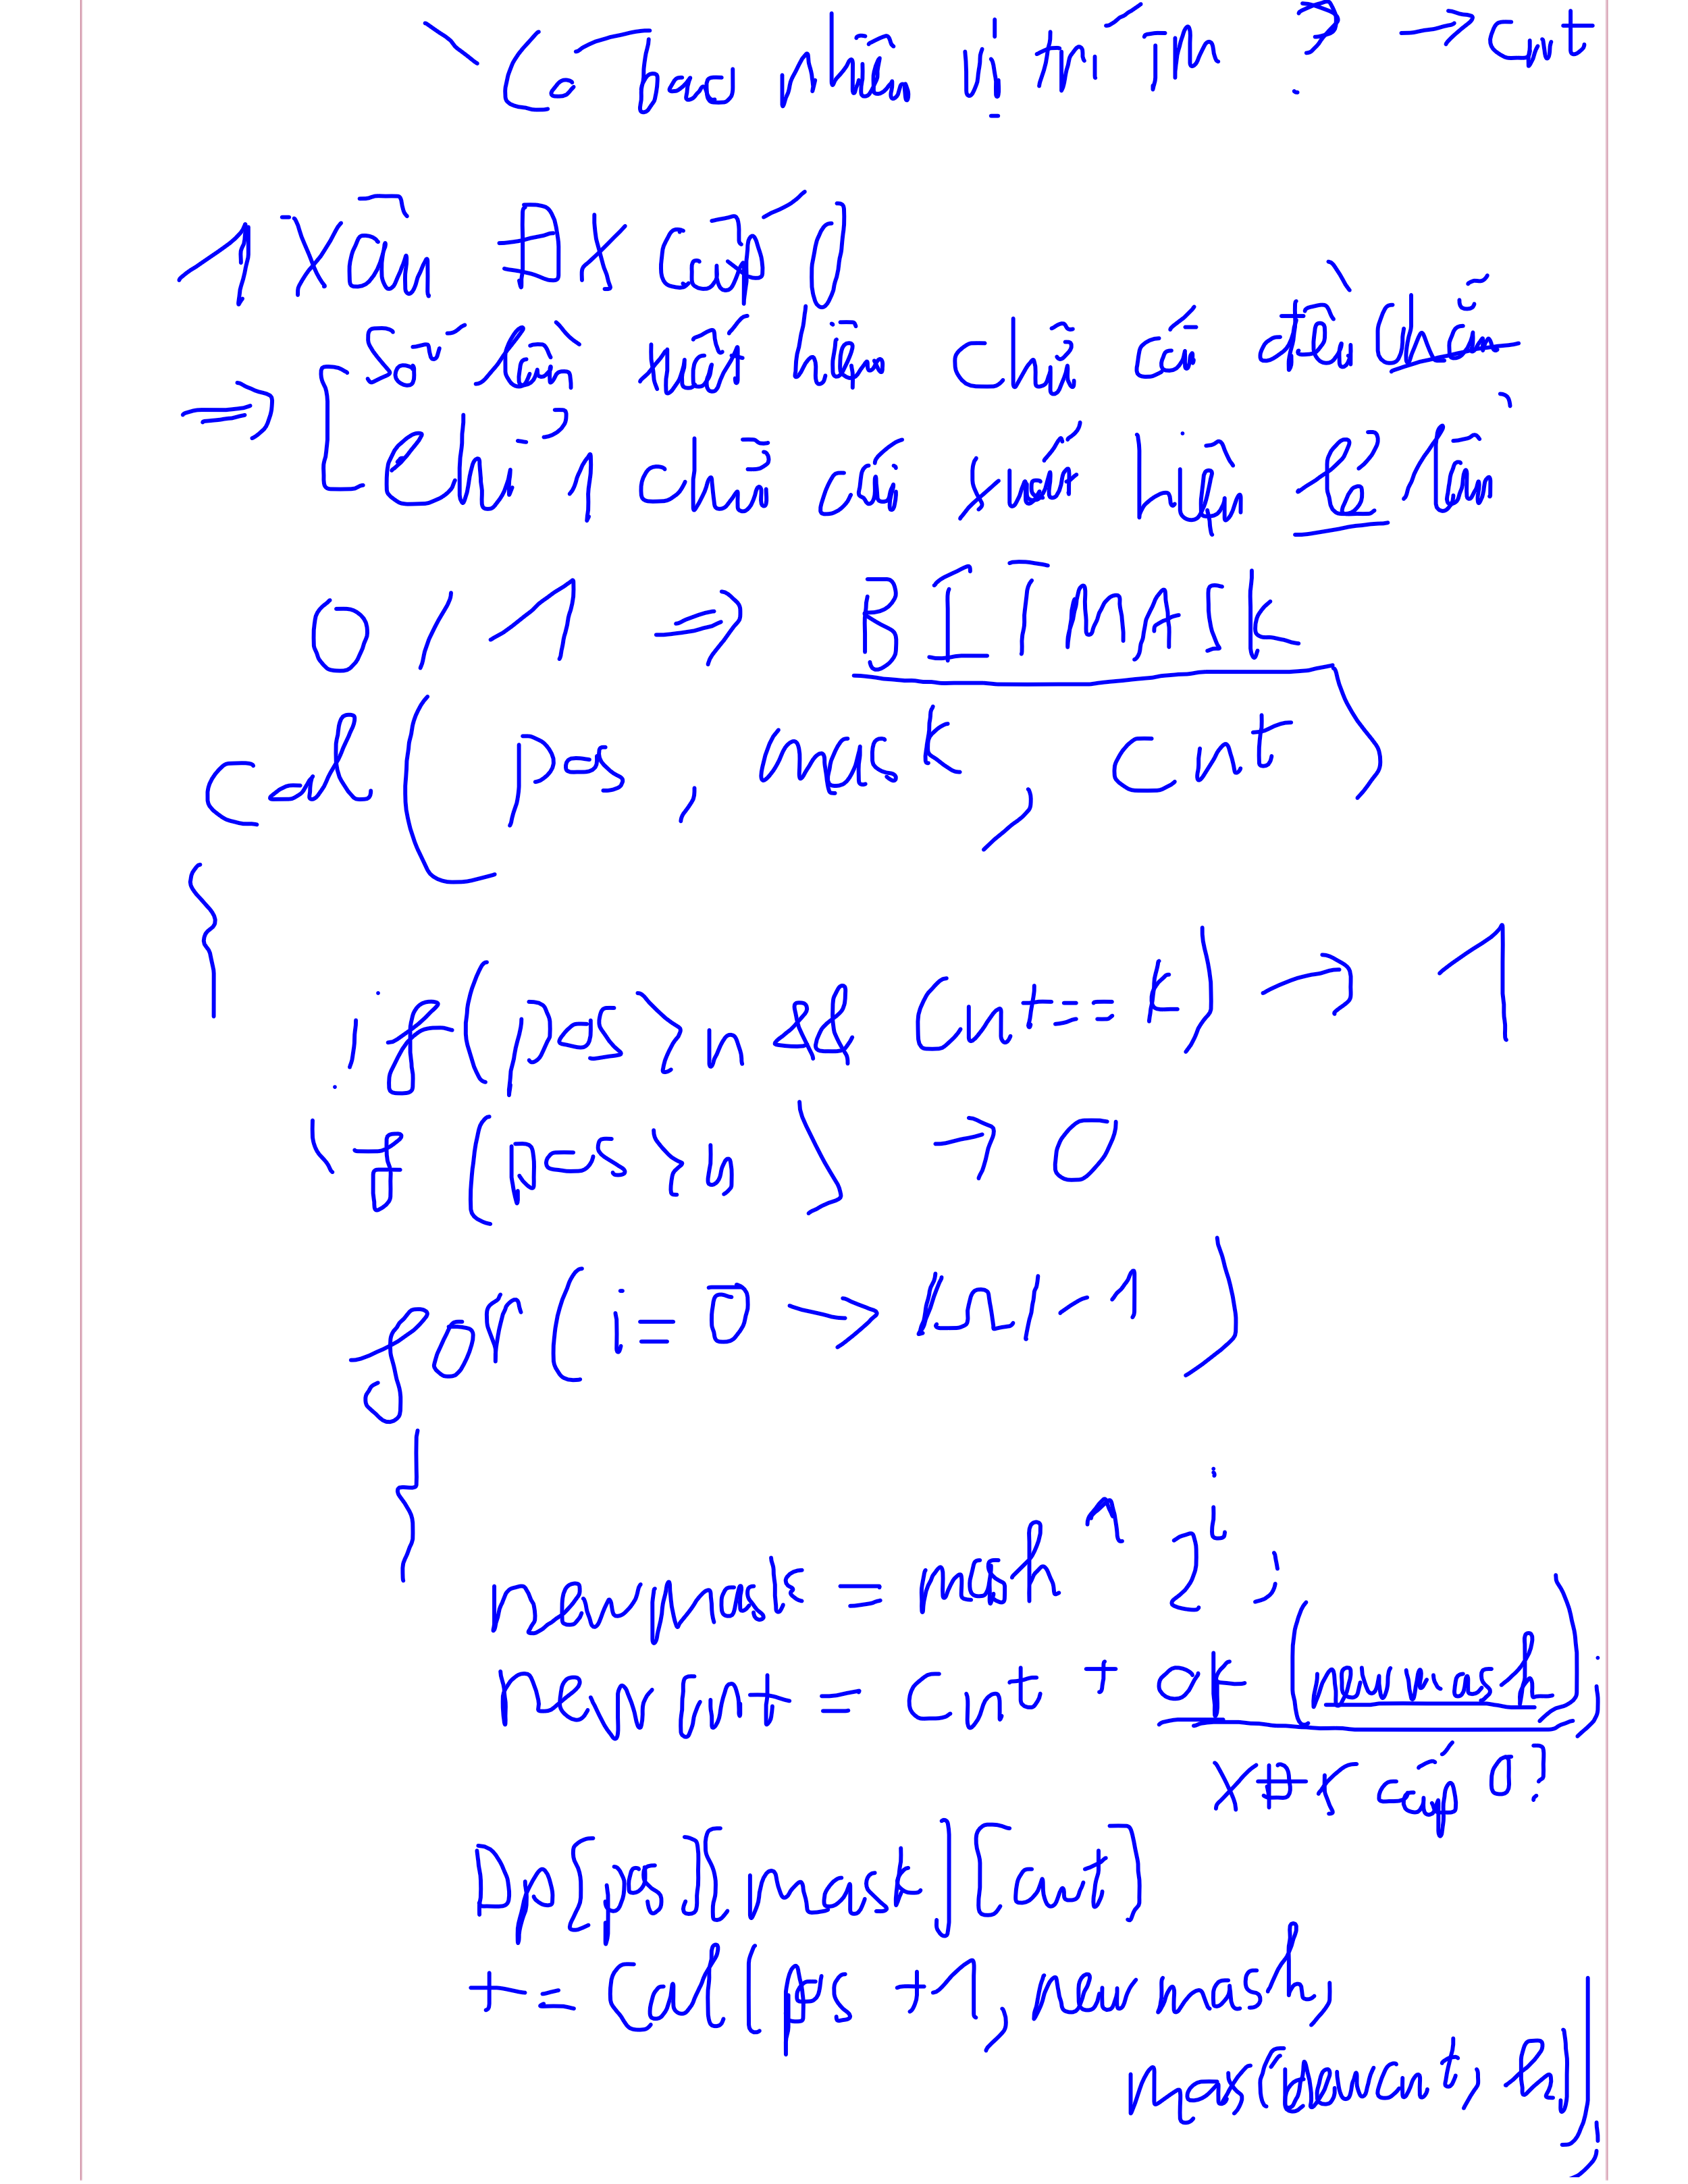 Có bao nhiêu vị trí im ? → cnt
1 xâu ĐX cấp 0
Số lần xuất hiện chữ cái đều chẵn
⇒ [ Chỉ 1 chữ cái xuất hiện lẻ lần
0 / 1 ⇒ BITMASK
cal( pos , mask , cnt )
{
if(pos>n && Cnt==k) → 1
if (pos>n) → 0
for(i=0 → |S|-1)
{
newmask = mask ^ 2^i ;
newcnt = cnt + ok (newmask);
XĐX cấp 0?
Dp[pos][mask][cnt]
+= Cal(pos +1, newmask,
max(newcnt, k));